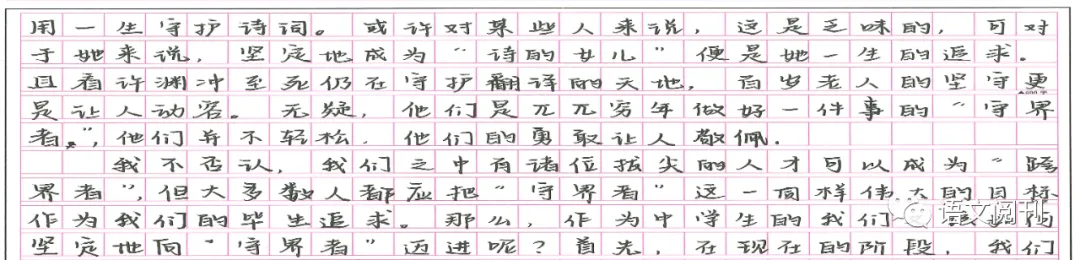 用一生守护诗词。或许对某些人来说，这是乏味的，可对
于她来说，坚定地成为“诗的女儿”便是她一生的追求。
且看许渊冲至死仍在守护翻译的天地，百岁老人的坚守更
是让人动容。无疑，他们是兀兀穷年做好一件事的“守界
者。”，他们并不轻松，他们的勇敢让人敬佩．
我不否认，我们之中有诸位拔尖的人才可以成为“跨
界者”，但大多数人都应把“守界者”这一同样伟大的目标
作为我们的毕生追求。那么，作为中学生的我们
坚定地向“守界者”迈进呢？首先，在现在的阶段，我们
语文阅刊